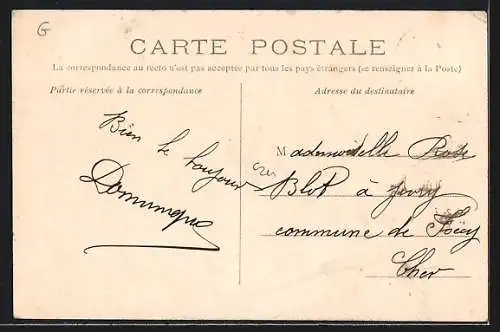 G
CARTE POSTALE
La correspondance au recto n'est pas acceptée par tous les pays étrangers (se renseigner à la Poste)
Partie réservée à la correspondance
Adresse du destinataire
Bien le bonjour
Dominique
Mademoiselle Rose
Blot à
commune de Foëcy
Cher